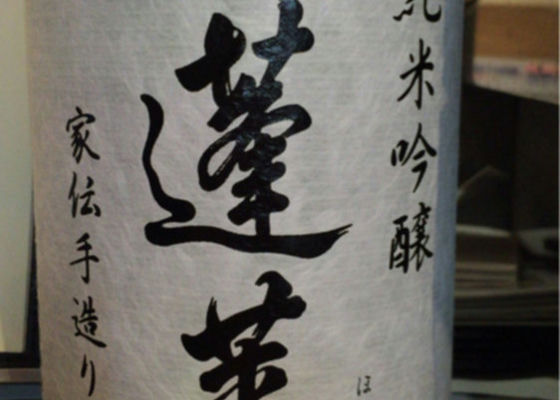 純米吟醸
ほ
蓬莱
家伝手造り